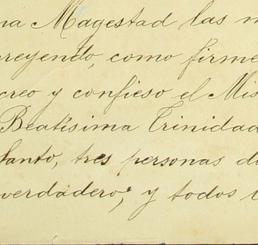 na Magestad las m
creyendo, como firme
creo y confieso el Mis
Beatísima Trinidad
Santo, tres personas di
verdadero, y todos l